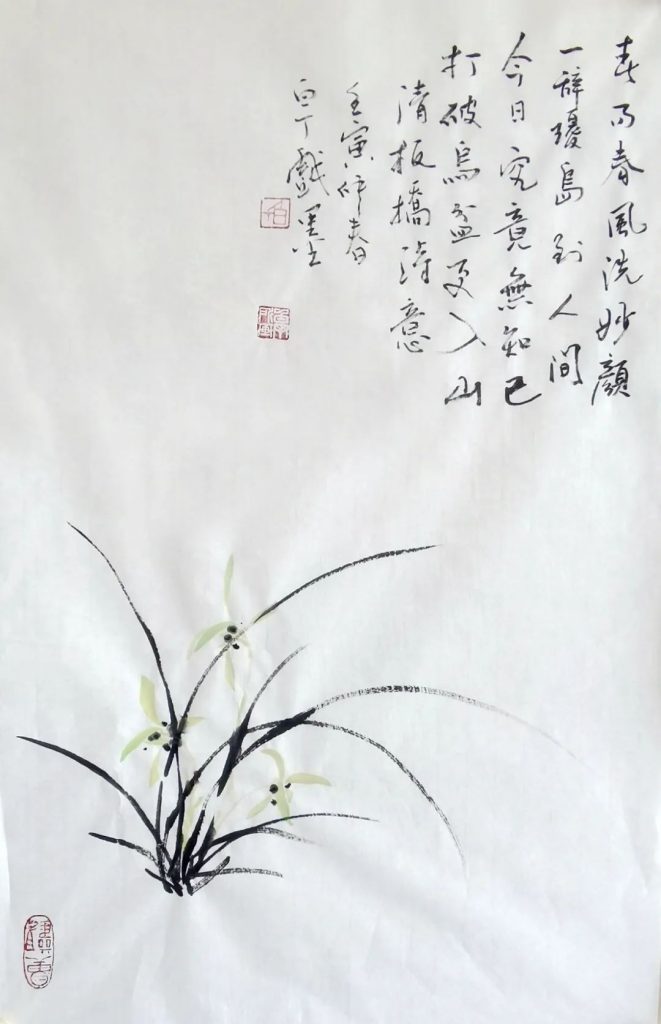 春雨春風洗妙顏
一辭瓊島到人間
今日究竟無知己
打破烏盆更入山
清板橋詩意
壬寅仲春
白丁戲墨